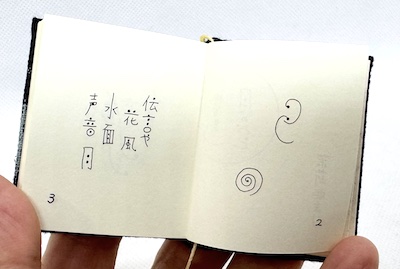 2
伝言や
花風
水面
声音月
3